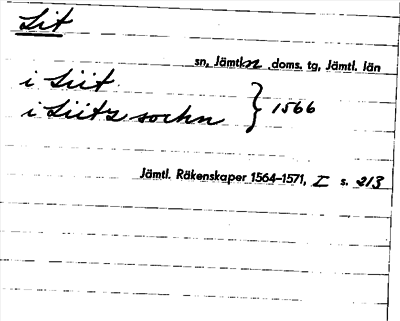 Lit
sn, Jämtl:n doms. tg, Jämtl. län
i Liit
i Liitz sochn } 1566
Jämtl. Räkenskaper 1564–1571, I s. 213